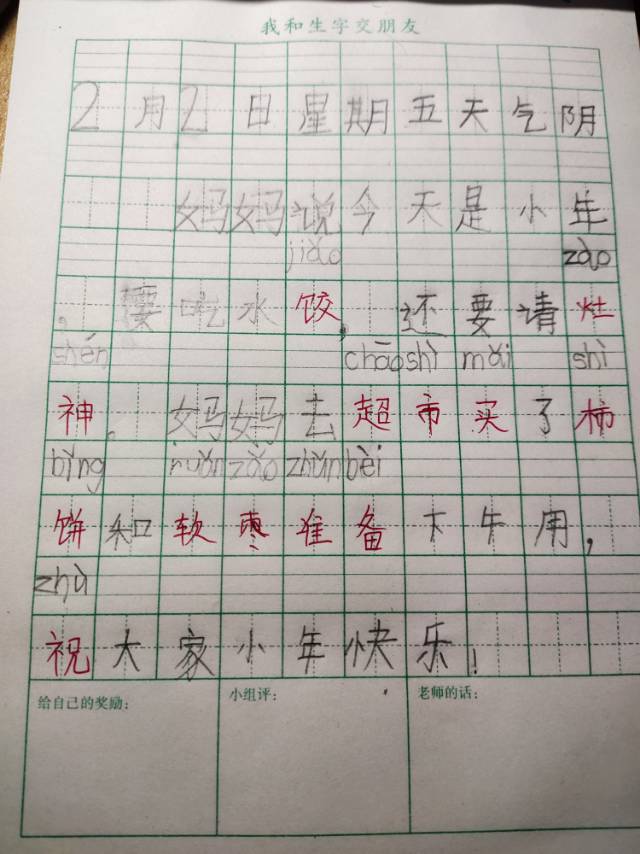 我和生字交朋友
2月2日星期五天气阴
妈妈说今天是小年
jiǎo zào
，要吃水饺，还要请灶
shén chāo shì mǎi shì
神。妈妈去超市买了柿
bǐng ruǎn zǎo zhǔn bèi
饼和软枣准备下午用，
zhù
祝大家小年快乐！
给自己的奖励： 小组评： 老师的话：